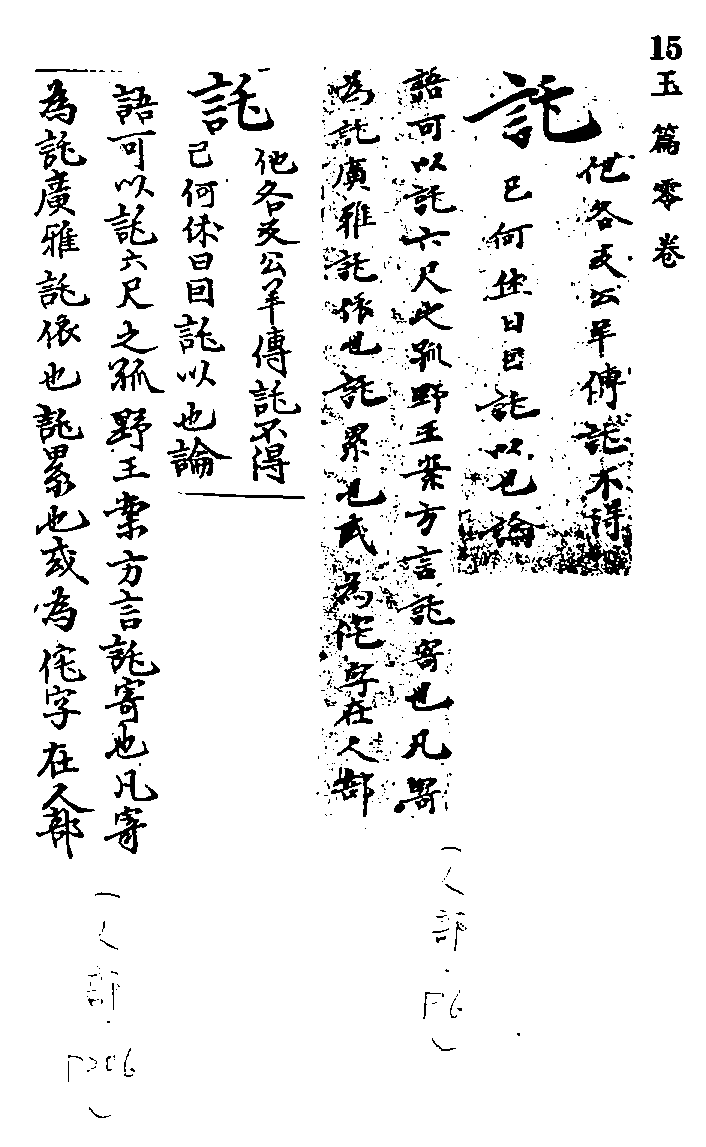 15
玉篇零卷
託
他各反公羊傳託不得
已何休曰因託以也論
語可以託六尺之孤野王案方言託寄也凡寄
為託廣雅託依也託累也或為侂字在人部
(人部.P6)
託
他各反公羊傳託不得
已何休曰因託以也論
語可以託六尺之孤野王案方言託寄也凡寄
為託廣雅託依也託累也或為侂字在人部
(人部.P206)